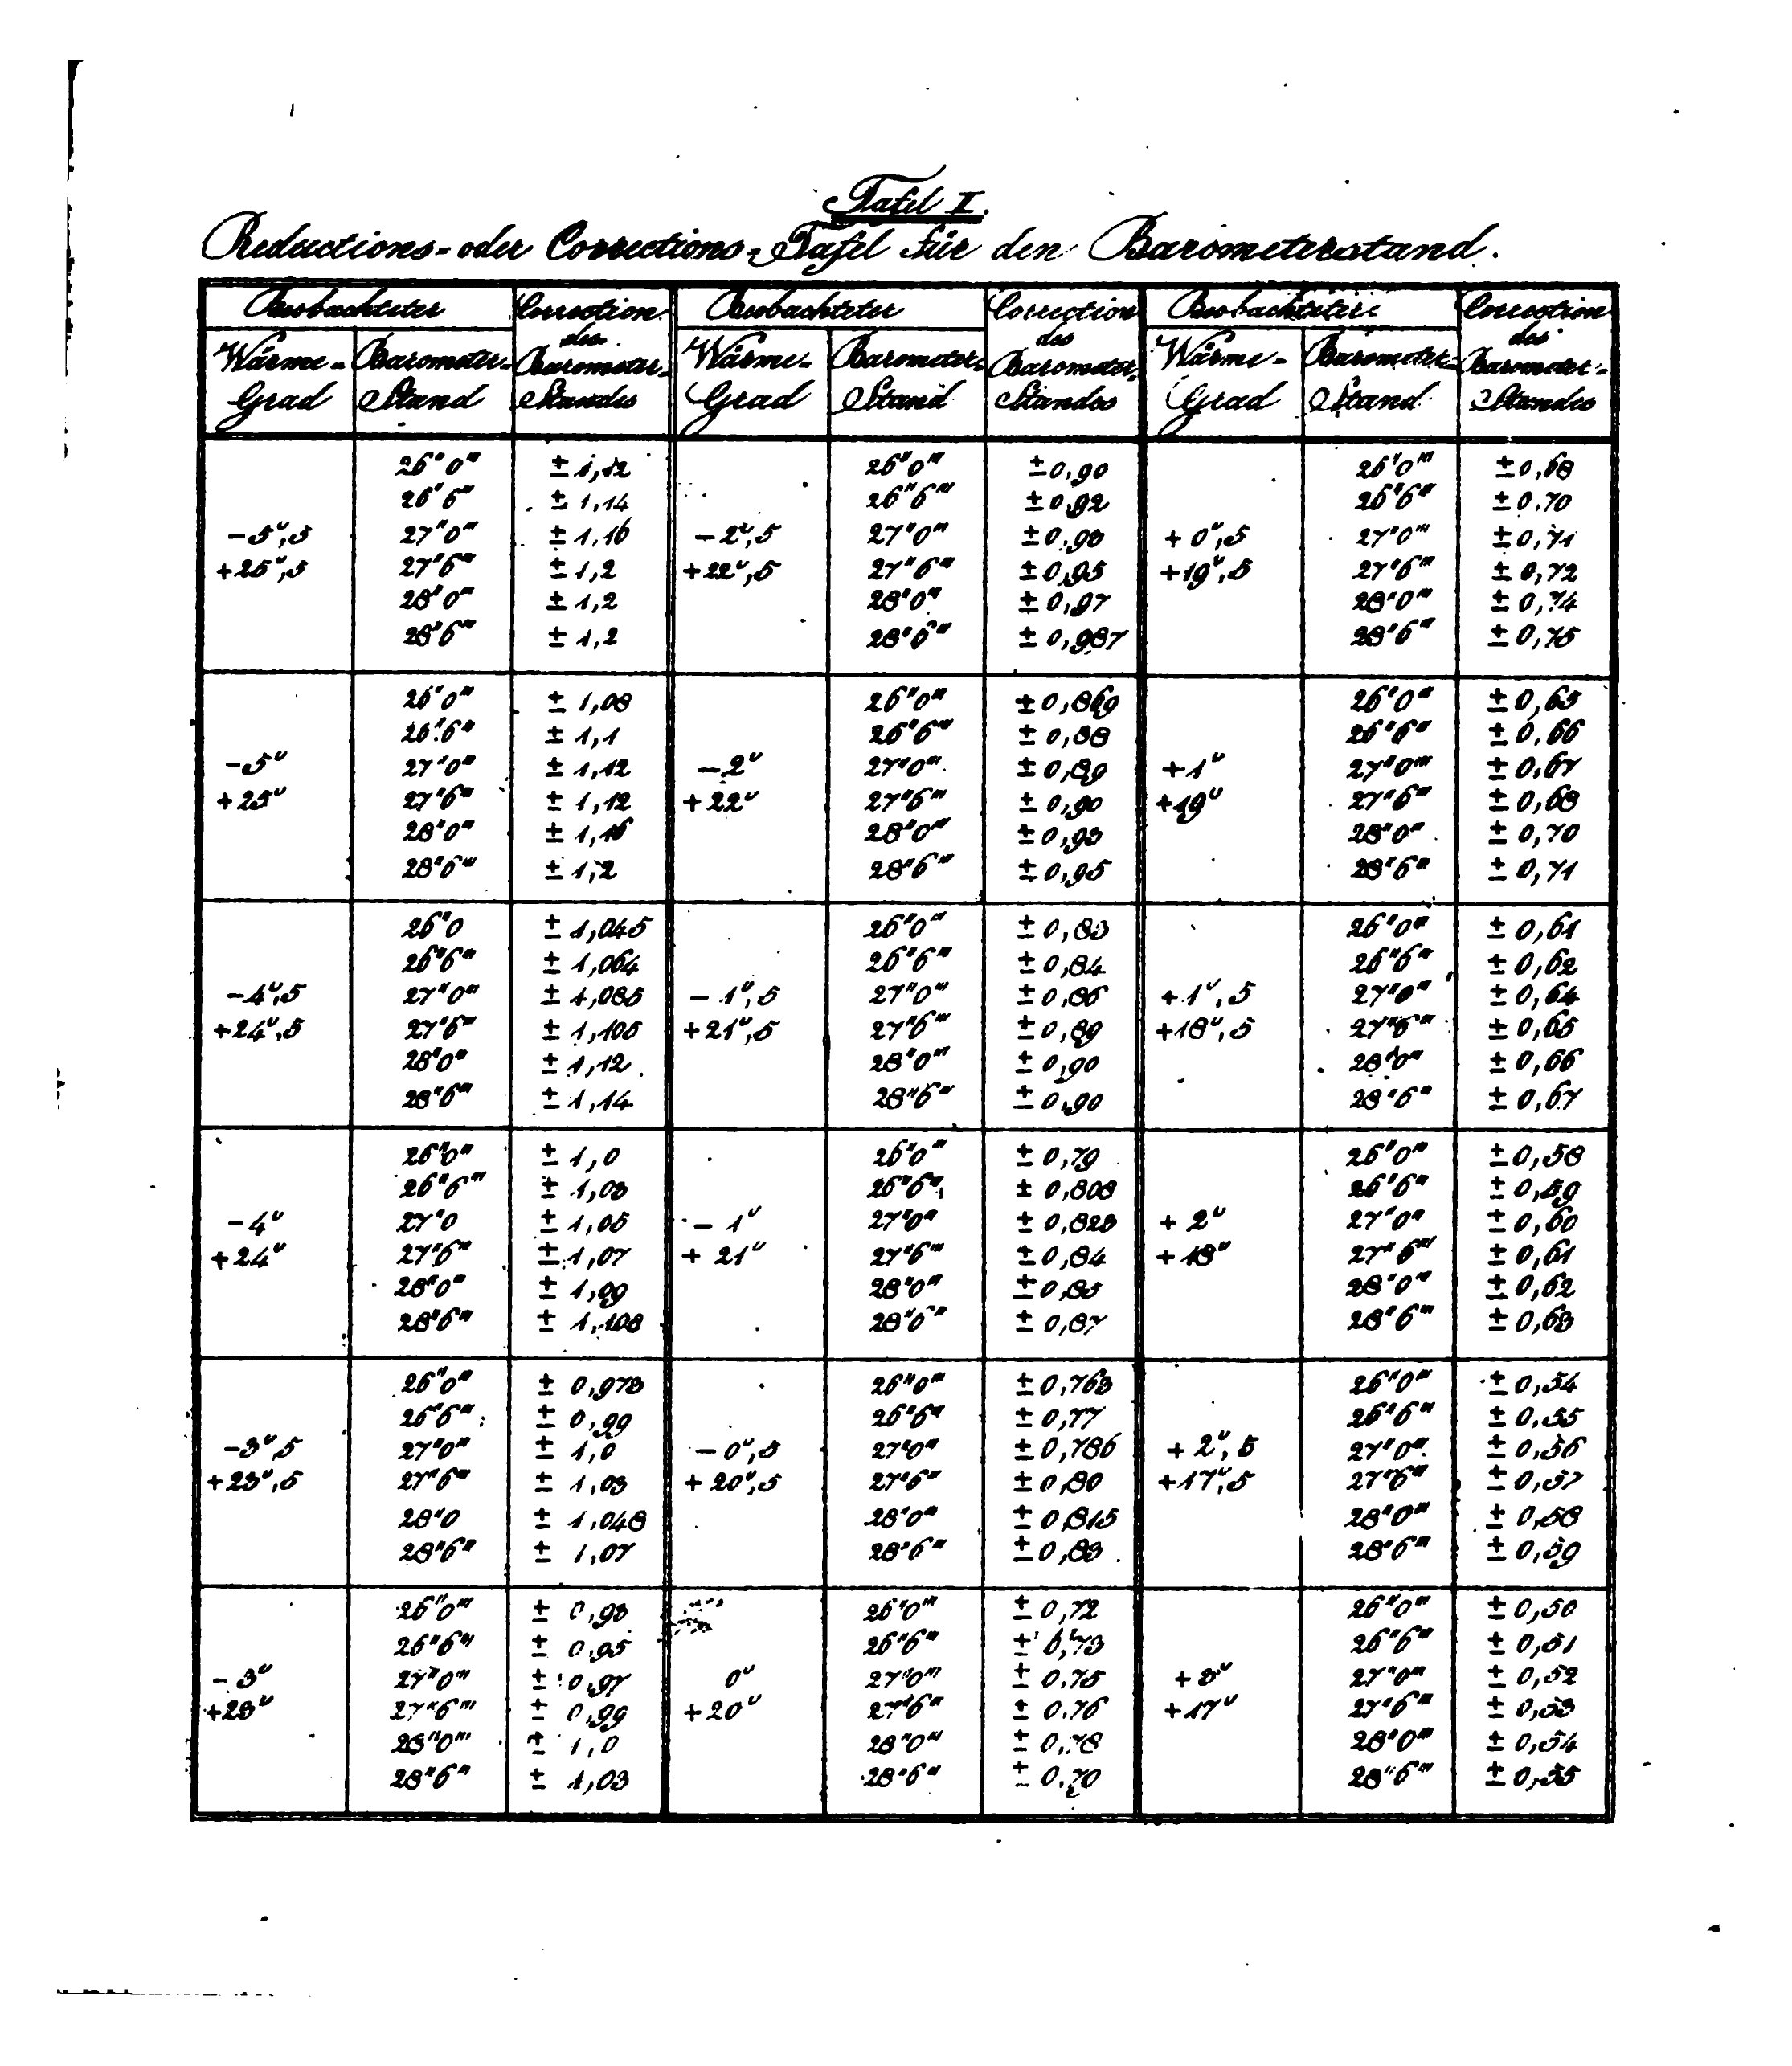 Tafel I.
Reductions- oder Corrections-Tafel für den Barometerstand.
Beobachteter | Correction des Barometer-Standes | Beobachteter | Correction des Barometer-Standes | Beobachteter | Correction des Barometer-Standes
Wärme-Grad | Barometer-Stand | Wärme-Grad | Barometer-Stand | Wärme-Grad | Barometer-Stand
26"0"' ± 1,12 26"0"' ± 0,90 26"0"' ± 0,68
26"6"' ± 1,14 26"6"' ± 0,92 26"6"' ± 0,70
-5°,5 27"0"' ± 1,16 -2°,5 27"0"' ± 0,93 +0°,5 27"0"' ± 0,71
+25°,5 27"6"' ± 1,2 +22°,5 27"6"' ± 0,95 +19°,5 27"6"' ± 0,72
28"0"' ± 1,2 28"0"' ± 0,97 28"0"' ± 0,74
28"6"' ± 1,2 28"6"' ± 0,987 28"6"' ± 0,75
26"0"' ± 1,08 26"0"' ± 0,869 26"0"' ± 0,65
26"6"' ± 1,1 26"6"' ± 0,88 26"6"' ± 0,66
-5° 27"0"' ± 1,12 -2° 27"0"' ± 0,89 +1° 27"0"' ± 0,67
+25° 27"6"' ± 1,12 +22° 27"6"' ± 0,90 +19° 27"6"' ± 0,68
28"0"' ± 1,16 28"0"' ± 0,93 28"0"' ± 0,70
28"6"' ± 1,2 28"6"' ± 0,95 28"6"' ± 0,71
26"0 ± 1,045 26"0"' ± 0,83 26"0"' ± 0,61
26"6"' ± 1,064 26"6"' ± 0,84 26"6"' ± 0,62
-4°,5 27"0"' ± 1,085 -1°,5 27"0"' ± 0,86 +1°,5 27"0"' ± 0,64
+24°,5 27"6"' ± 1,105 +21°,5 27"6"' ± 0,89 +18°,5 27"6"' ± 0,65
28"0"' ± 1,12 28"0"' ± 0,90 28"0"' ± 0,66
28"6"' ± 1,14 28"6"' ± 0,90 28"6"' ± 0,67
26"0"' ± 1,0 26"0"' ± 0,79 26"0"' ± 0,58
26"6"' ± 1,03 26"6"' ± 0,808 26"6"' ± 0,59
-4° 27"0 ± 1,05 -1° 27"0"' ± 0,823 +2° 27"0"' ± 0,60
+24° 27"6"' ± 1,07 +21° 27"6"' ± 0,84 +18° 27"6"' ± 0,61
28"0"' ± 1,99 28"0"' ± 0,85 28"0"' ± 0,62
28"6"' ± 1,108 28"6"' ± 0,87 28"6"' ± 0,63
26"0"' ± 0,973 26"0"' ± 0,763 26"0"' ± 0,54
26"6"' ± 0,99 26"6"' ± 0,77 26"6"' ± 0,55
-3°,5 27"0"' ± 1,0 -0°,5 27"0"' ± 0,786 +2°,5 27"0"' ± 0,56
+23°,5 27"6"' ± 1,03 +20°,5 27"6"' ± 0,80 +17°,5 27"6"' ± 0,57
28"0 ± 1,048 28"0"' ± 0,815 28"0"' ± 0,58
28"6"' ± 1,07 28"6"' ± 0,83 28"6"' ± 0,59
26"0"' ± 0,93 26"0"' ± 0,72 26"0"' ± 0,50
26"6"' ± 0,95 26"6"' ± 0,73 26"6"' ± 0,51
-3° 27"0"' ± 0,97 0° 27"0"' ± 0,75 +3° 27"0"' ± 0,52
+23° 27"6"' ± 0,99 +20° 27"6"' ± 0,76 +17° 27"6"' ± 0,53
28"0"' ± 1,0 28"0"' ± 0,78 28"0"' ± 0,54
28"6"' ± 1,03 28"6"' ± 0,70 28"6"' ± 0,55